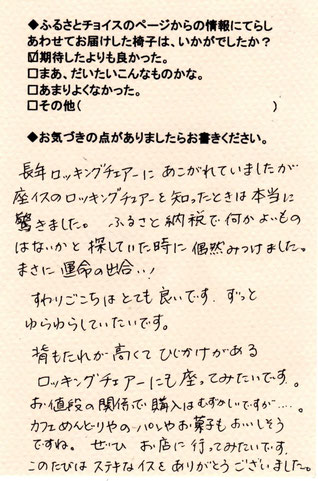 ◆ふるさとチョイスのページからの情報にてらし
あわせてお届けした椅子は、いかがでしたか？
☑期待したよりも良かった。
□まあ、だいたいこんなものかな。
□あまりよくなかった。
□その他( )
◆お気づきの点がありましたらお書きください。
長年ロッキングチェアーにあこがれていましたが
座イスのロッキングチェアーを知ったときは本当に
驚きました。ふるさと納税で何かよいもの
はないかと探していた時に偶然みつけました。
まさに運命の出合い!
すわりごこちはとても良いです。ずっと
ゆらゆらしていたいです。
背もたれが高くてひじかけがある
ロッキングチェアーにも座ってみたいです。
お値段の関係で購入はむずかしいですが....。
カフェめんどりやのパンやお菓子もおいしそう
ですね。ぜひお店に行ってみたいです。
このたびはステキなイスをありがとうございました。